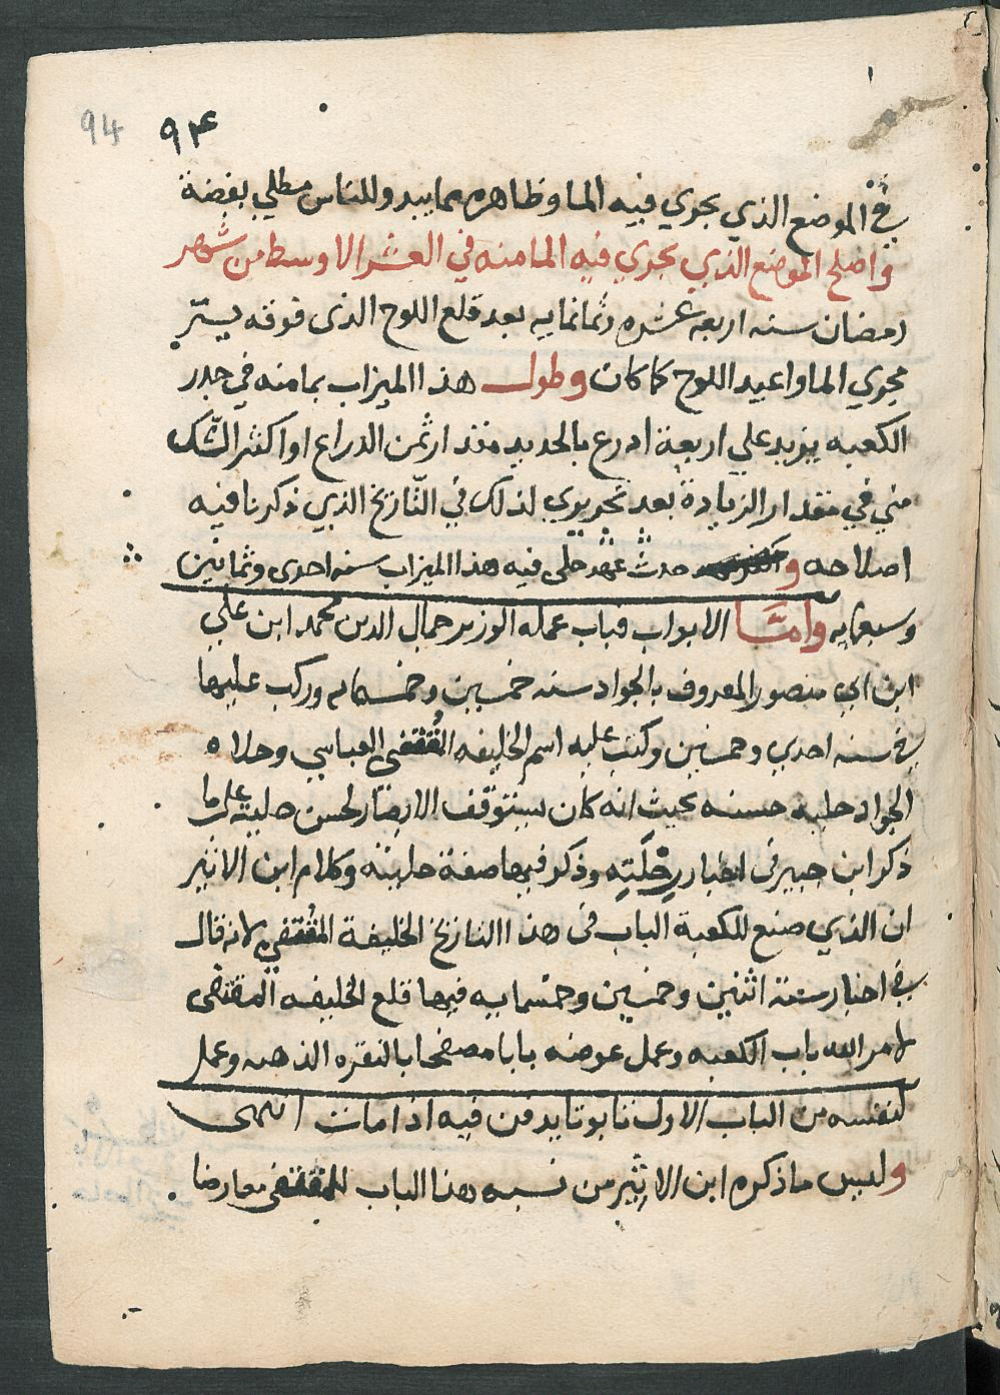 94 ٩٤
في الموضع الذي يجري فيه الما وظاهره مما يبدو للناس مطلي بفضة
واصلح الموضع الذي يجري فيه الما منه في العشر الاوسط من شهر
رمضان سنه اربعه عشره وثمانمايه بعد قلع اللوح الذى فوقه يستر
مجري الما واعيد اللوح كما كان وطول هذا الميزاب بما منه في جدر
الكعبه يزيد علي اربعة اذرع بالحديد مقدار ثمن الذراع او اكثر الشك
مني في مقدار الزيادة بعد تحريري لذلك في التاريخ الذي ذكرنا فيه
اصلاحه و حدث عهد حلى فيه هذا الميزاب سنه احدى وثمانين
وسبعمايه واما الابواب فباب عمله الوزير جمال الدين محمد ابن علي
ابن ابي منصور المعروف بالجواد سنه خمسين وخمسمايه وركب عليها
في سنه احدي وخمسين وكتب عليه اسم الخليفه المقتفي العباسي وحلاه
الجواد حليه حسنه بحيث انه كان يستوقف الابصار لحسن حليته علي ما
ذكر ابن جبير فى اخبار رحلته وذكر فيها صفة حليته وكلام ابن الاثير
ان الذي صنع للكعبة الباب فى هذا التاريخ الخليفة المقتفي لانه قال
في اخبار سنة اثنين وخمسين وخمسمايه فيها قلع الخليفه المقتفى
لامر الله باب الكعبه وعمل عوضه بابا مصفحا بالنقره الذهبه وعمل
لنفسه من الباب الاول تابوتا يدفن فيه اذا مات انتهى
وليس ما ذكره ابن الاثير من نسبه هذا الباب للمقتفى معارضا